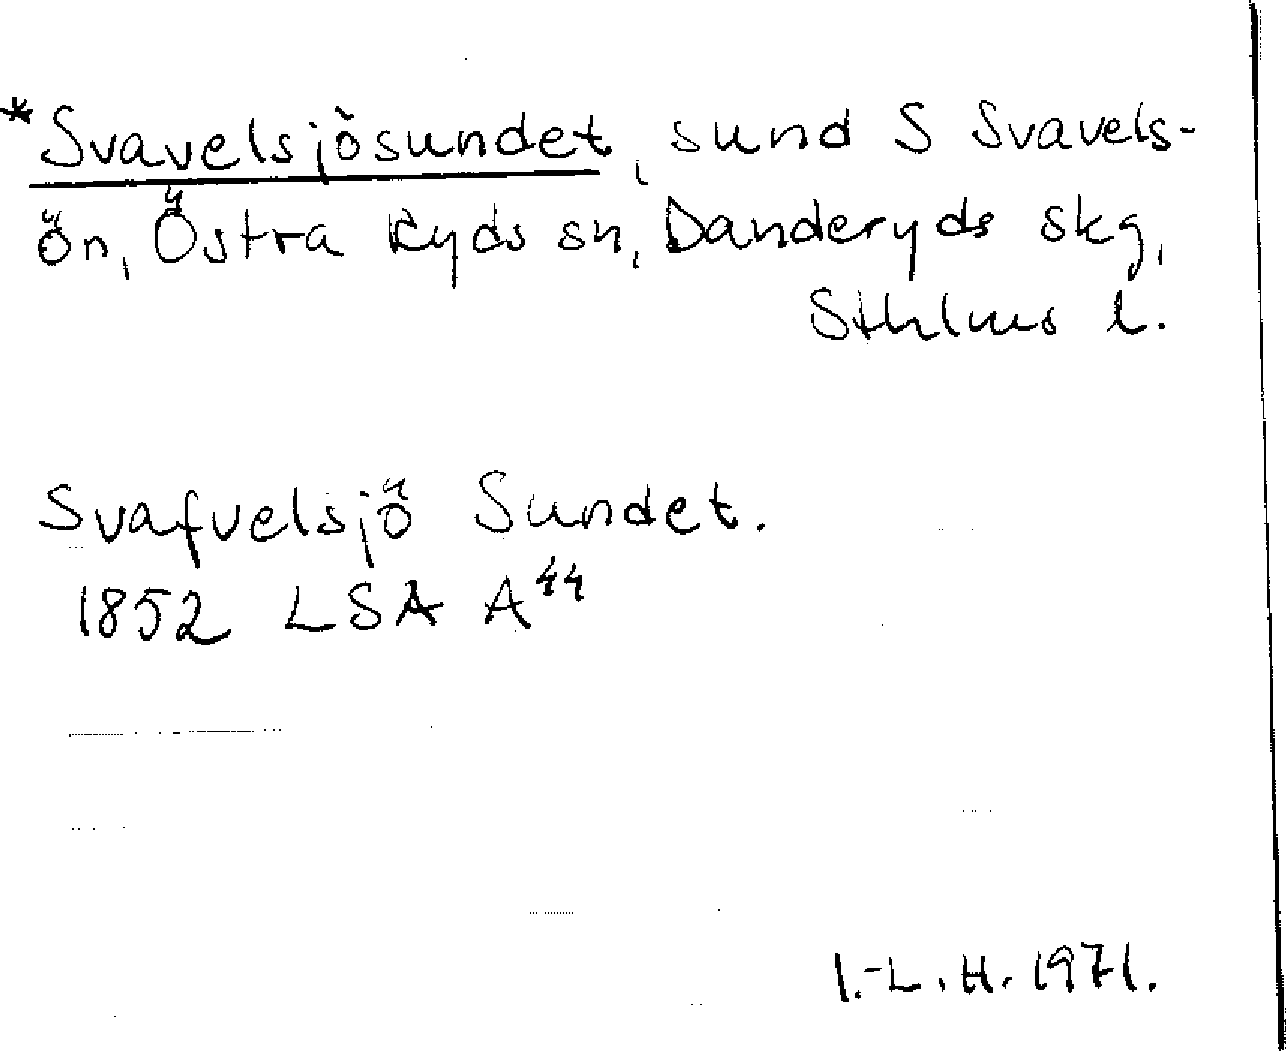 *Svavelsjösundet, sund S Svavels-
ön, Östra Ryds sn, Danderyds skg,
Sthlms l.
Svafvelsjö Sundet.
1852 LSA A⁴⁴
I.-L. H. 1971.